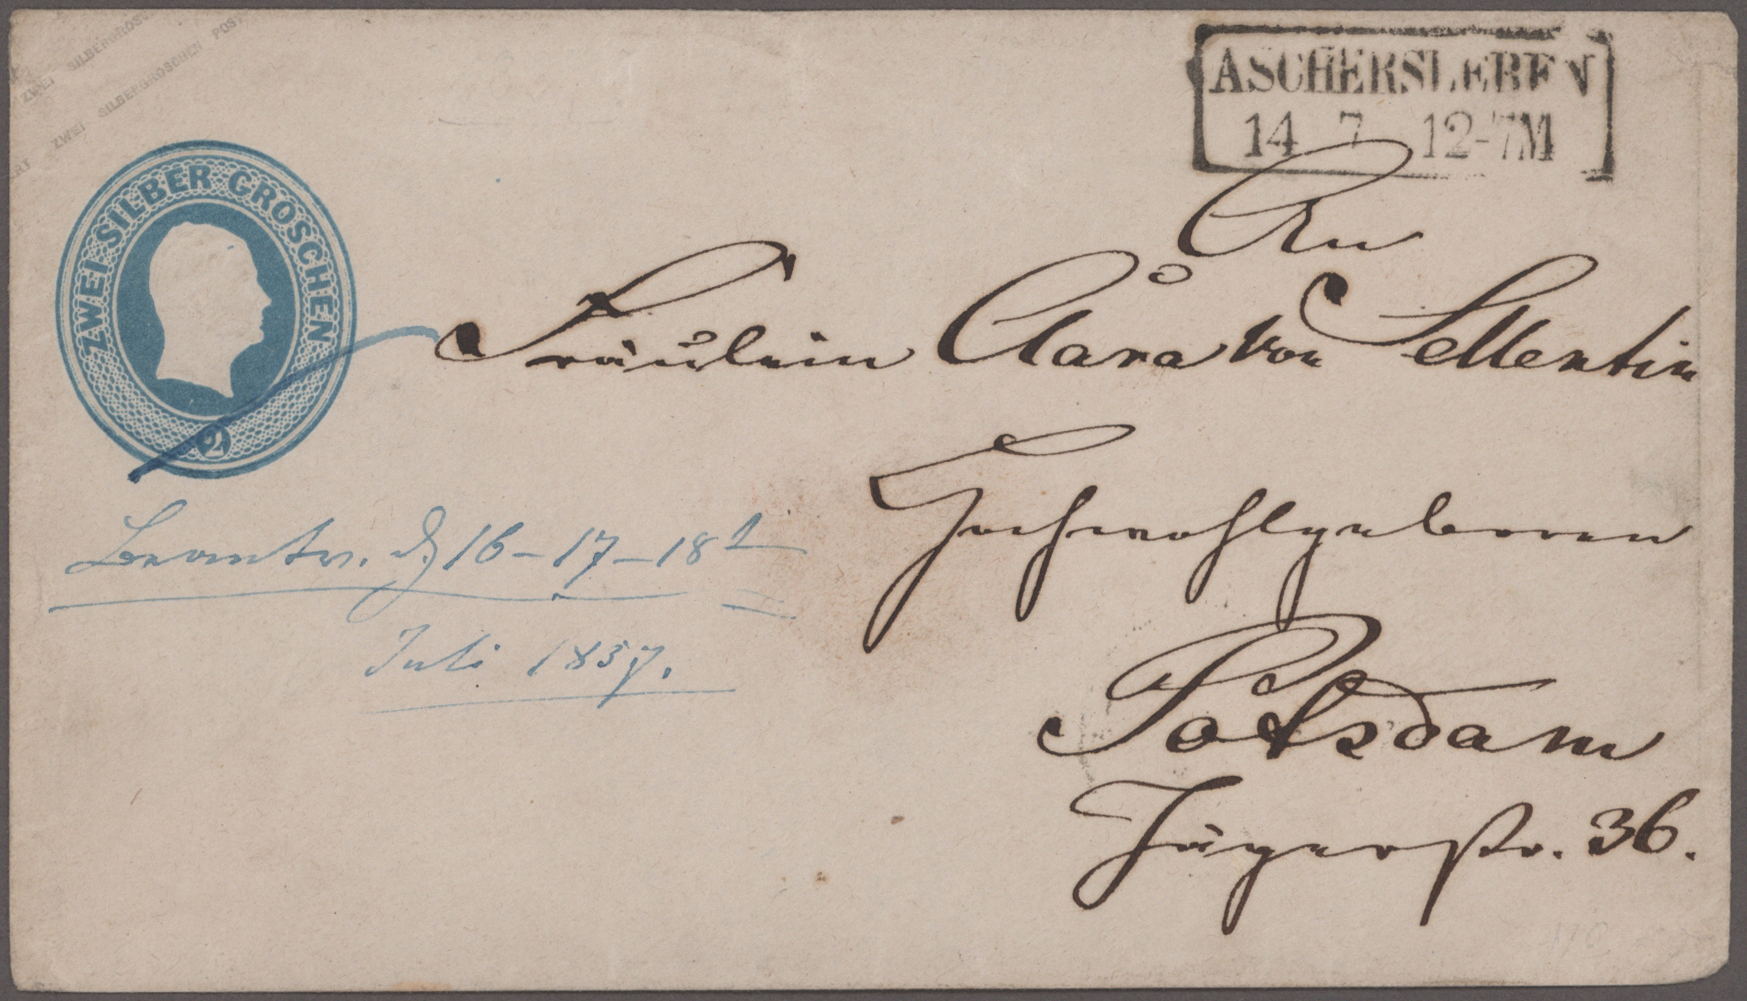 ZWEI SILBERGROSCHEN
ZWEI SILBERGROSCHEN POST
ZWEI SILBER GROSCHEN
2
ASCHERSLEBEN
14 7 12-7M
An
Fräulein Clara von Sellentin
Hochwohlgeboren
Potsdam
Jägerstr. 36.
Beantw. d 16-17-18t
Juli 1857.